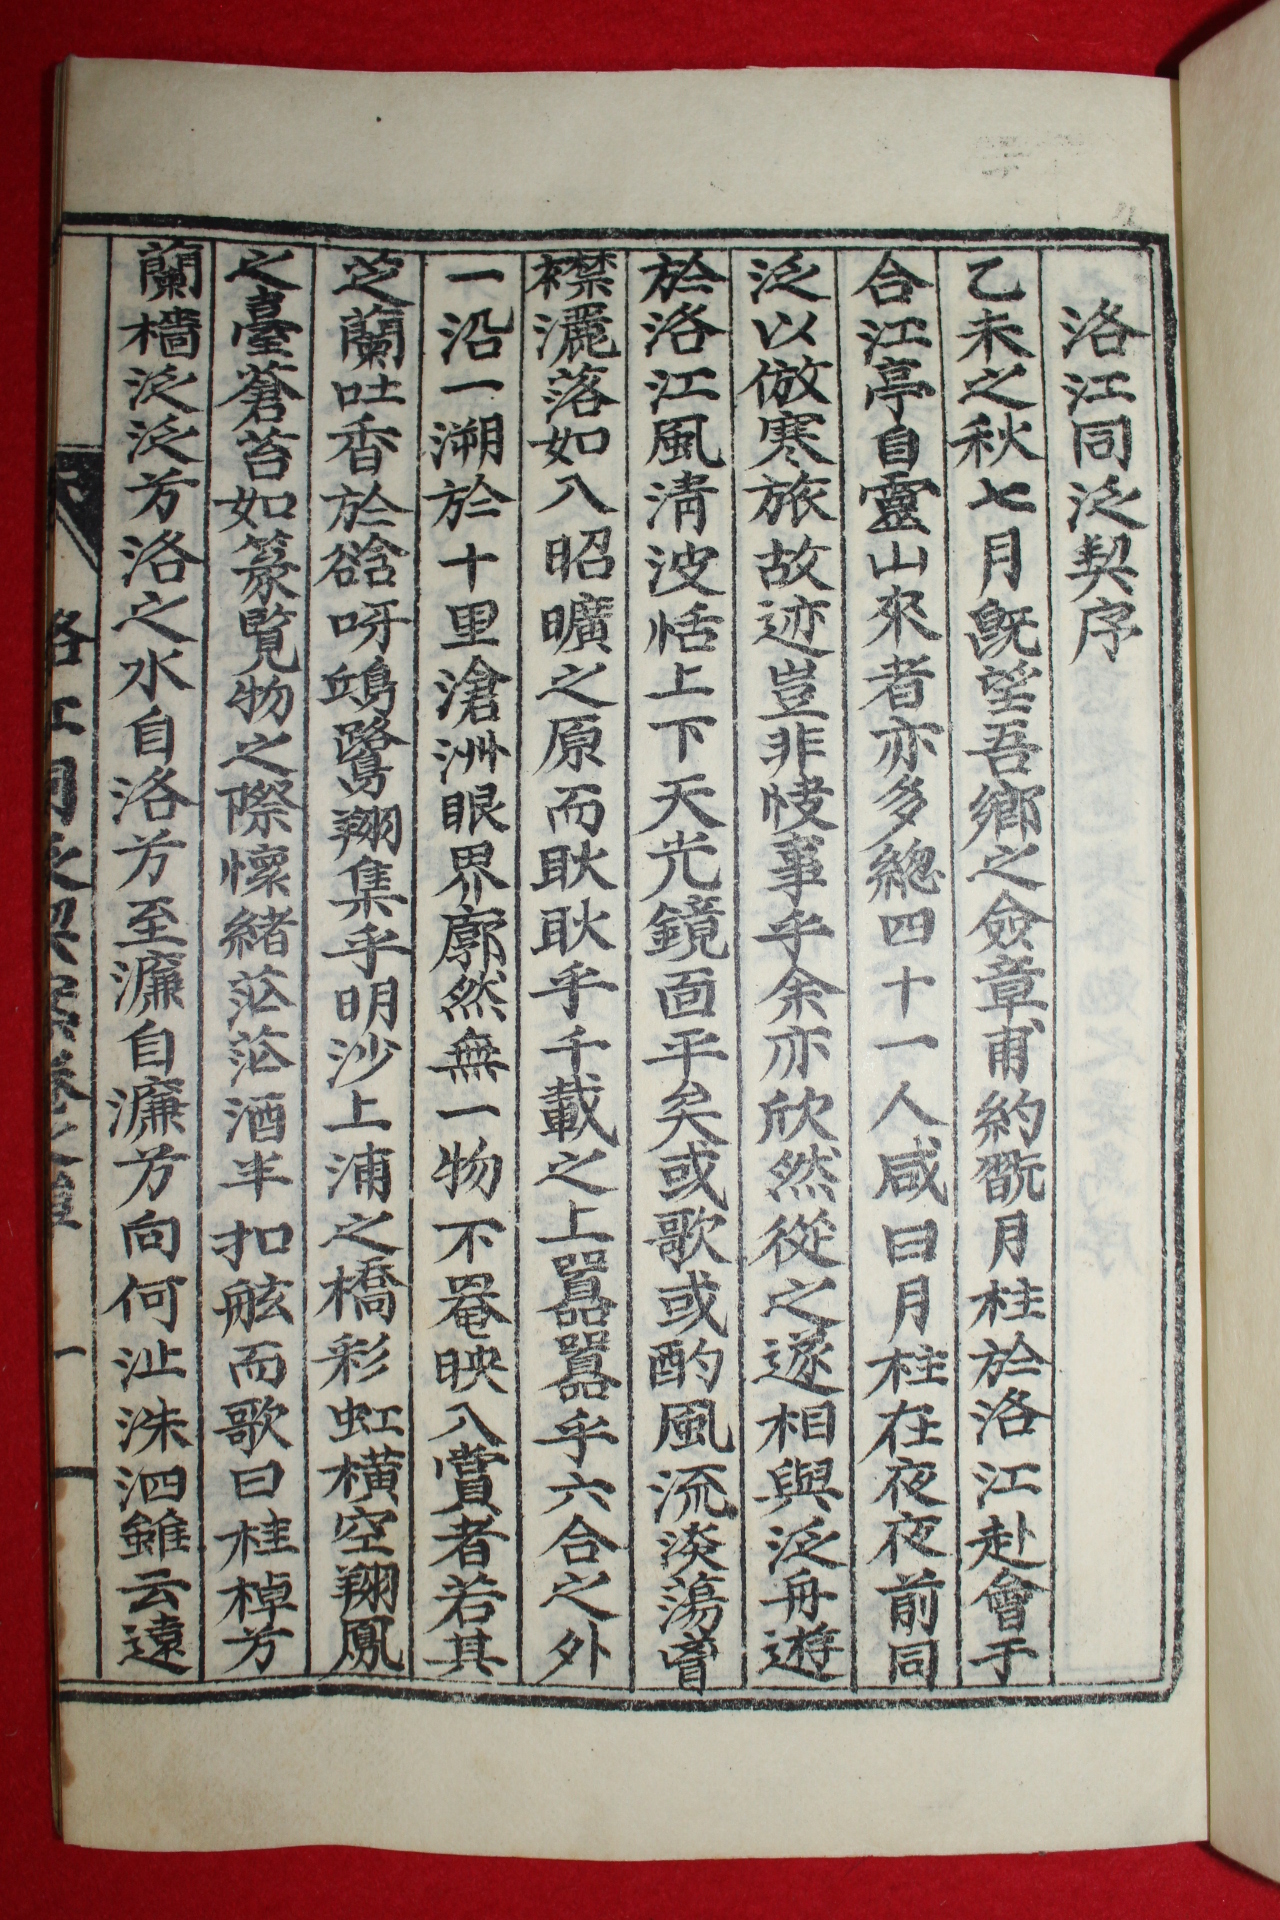 洛江同泛契序
乙未之秋七月旣望吾鄕之僉章甫約翫月柱於洛江赴會于
合江亭自靈山來者亦多總四十一人咸曰月柱在夜夜前同
泛以倣寒旅故迹豈非㤓事乎余亦欣然從之遂相與泛舟遊
於洛江風淸波恬上下天光鏡面平矣或歌或酌風流淡蕩胷
襟灑落如入昭曠之原而耿耿乎千載之上囂囂乎六合之外
一沿一溯於十里滄洲眼界廓然無一物不罨映入賞者若其
芝蘭吐香於谽呀鴆鷺翔集乎明沙上浦之橋彩虹橫空翔鳳
之臺蒼苔如篆覽物之際懷緖茫茫酒半扣舷而歌曰桂棹兮
蘭檣泛泛兮洛之水自洛兮至濂自濂兮向何沚洙泗雖云遠
洛江同泛契案卷之壹 一